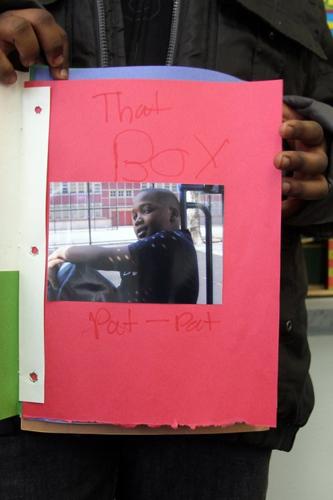 That
BOX
Pat - Pat